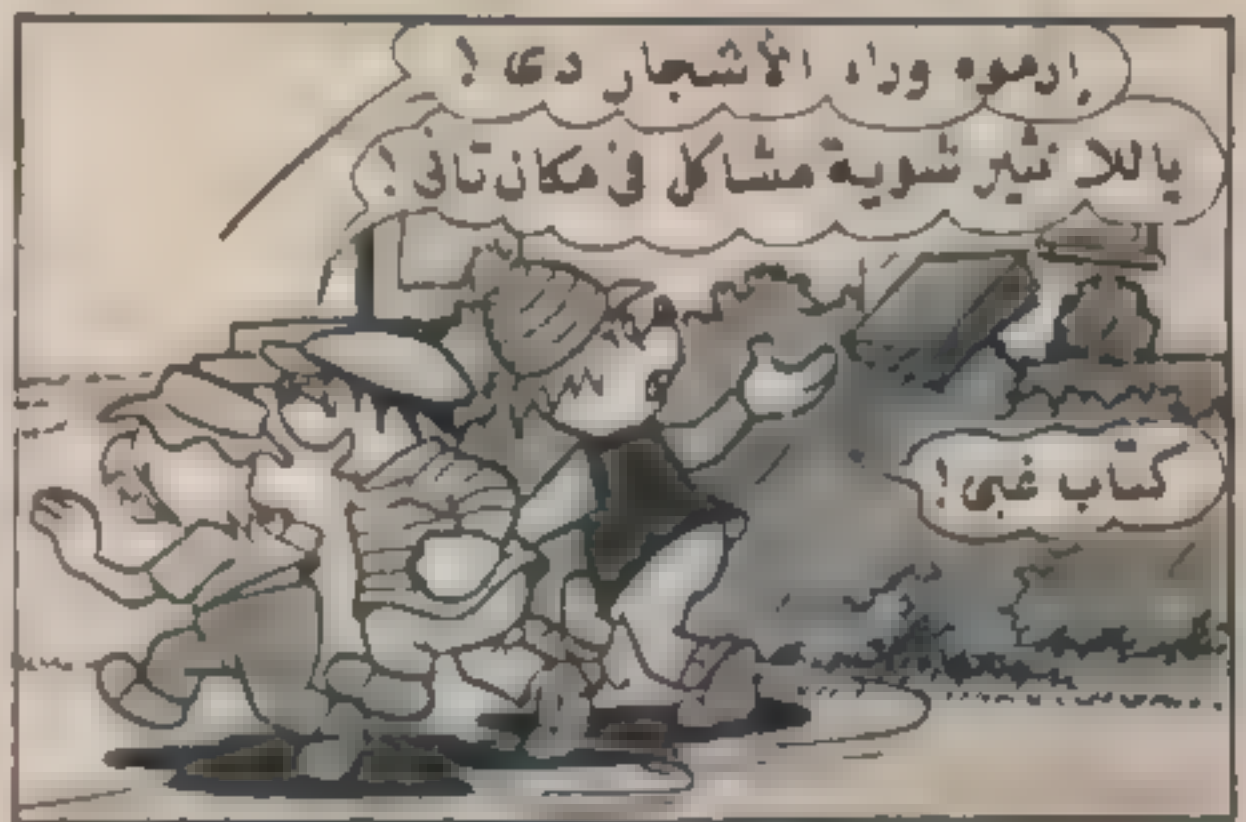 إرموه وراء الأشجار دى !
ياللا نثير شوية مشاكل فى مكان تانى !
كتاب غبى !